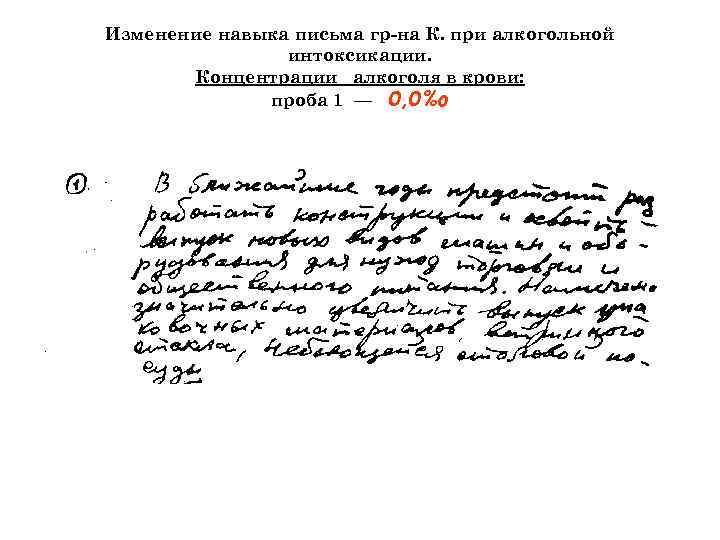 Изменение навыка письма гр-на К. при алкогольной
интоксикации.
Концентрации алкоголя в крови:
проба 1 — 0,0‰
1 В ближайшие годы предстоит раз
работать конструкции и освоить
выпуск новых видов машин и обо-
рудования для нужд торговли и
общественного питания. Намечено
значительно увеличить выпуск упа
ковочных материалов, витринного
стекла, небьющейся столовой по-
суды